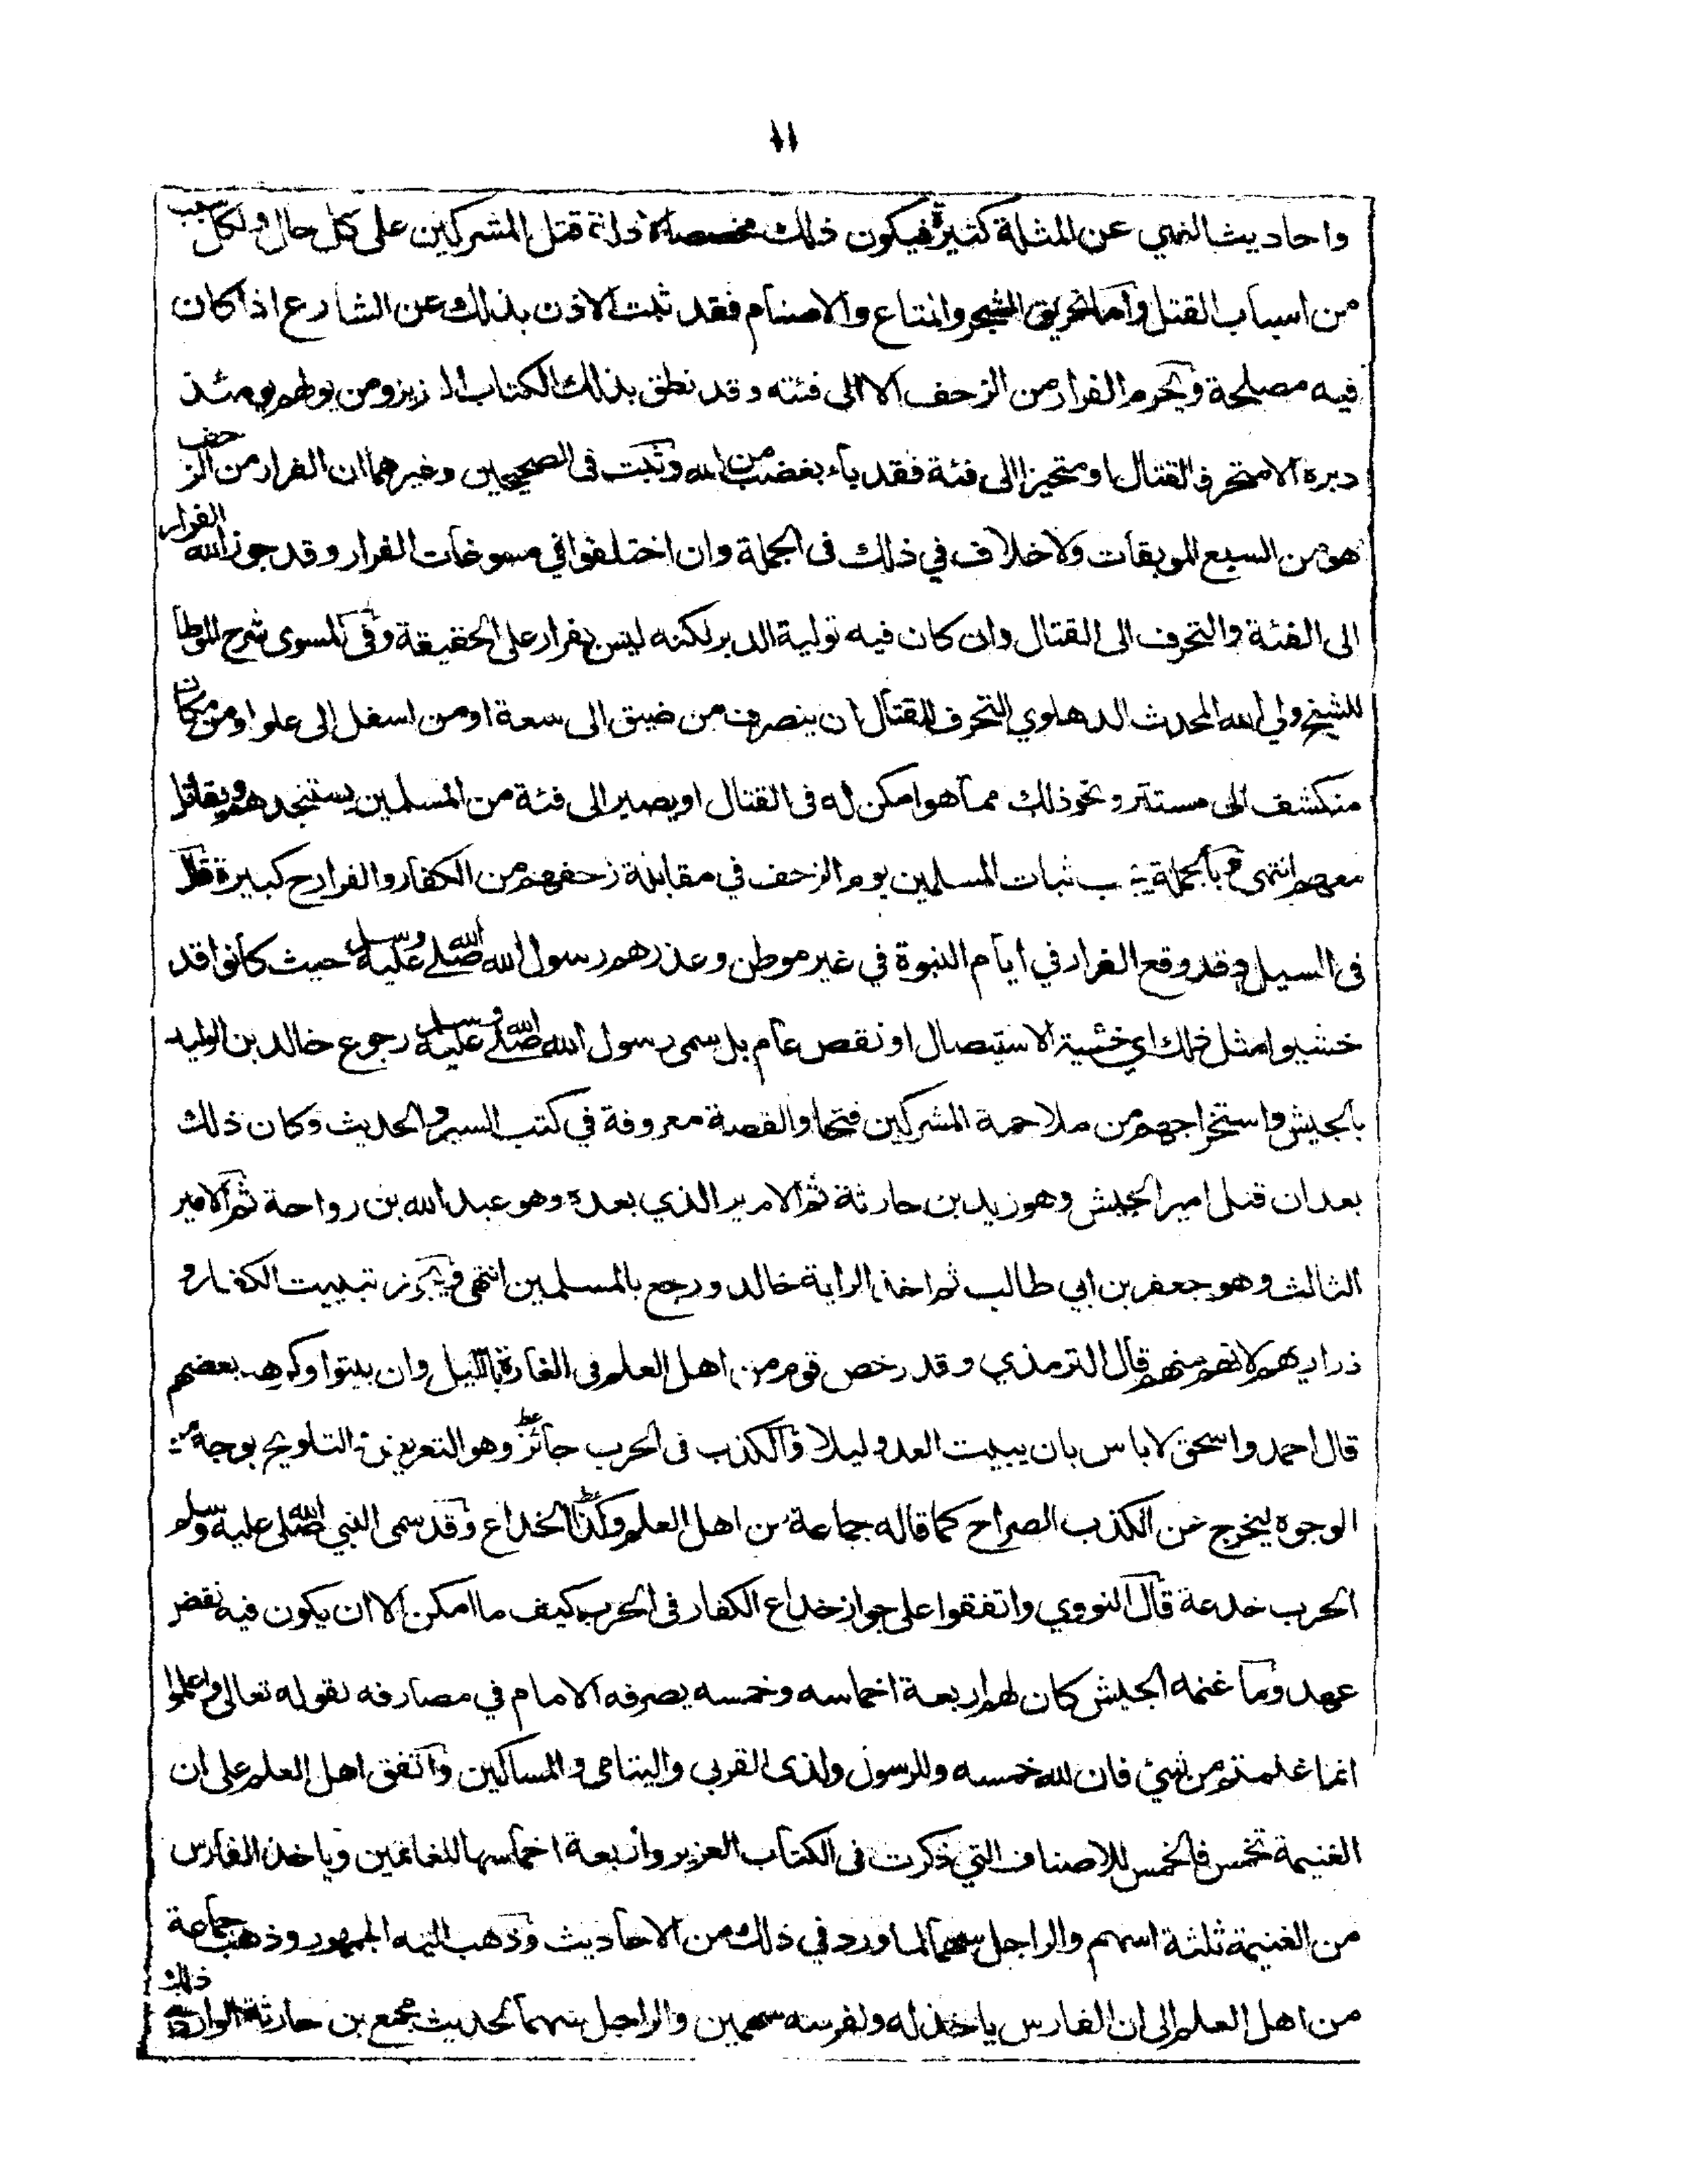 ١١
واحاديث النهي عن المثلة كثيرة فيكون ذلك مخصصا لادلة قتل المشركين على كل حال ولكل سبب
من اسباب القتل واما تحريق الشجر والمتاع والاصنام فقد ثبت الاذن بذلك عن الشارع اذا كان
فيه مصلحة ويحرم الفرار من الزحف الا الى فئته وقد نطق بذلك الكتاب العزيز ومن يولهم يومئذ
دبره الا متحرفا لقتال او متحيزا الى فئة فقد باء بغضب من الله وثبت فى الصحيحين وغيرهما ان الفرار من الزحف
هو من السبع الموبقات ولا خلاف في ذلك فى الجملة وان اختلفوا في مسوغات الفرار وقد جوز الله الفرار
الى الفئة والتحرف الى القتال وان كان فيه تولية الدبر لكنه ليس بفرار على الحقيقة وفى المسوى شرح الموطا
للشيخ ولي الله المحدث الدهلوي التحرف للقتال ان ينصرف من ضيق الى سعة او من اسفل الى علو او من مكان
منكشف الى مستتر ونحو ذلك مما هو امكن له فى القتال او يصير الى فئة من المسلمين يستنجدهم ويقاتل
معهم انتهى وبالجملة يجب ثبات المسلمين يوم الزحف في مقابلة زحفهم من الكفار والفرار ح كبيرة قال
فى السيل وقد وقع الفرار في ايام النبوة في غير موطن وعذرهم رسول الله صلى الله عليه وسلم حيث كانوا قد
خشيوا مثل ذلك اي خشية الاستيصال او نقص عام بل سمى رسول الله صلى الله عليه وسلم رجوع خالد بن الوليد
بالجيش واستخراجهم من ملاحمة المشركين فتحا والقصة معروفة في كتب السير والحديث وكان ذلك
بعد ان قتل امير الجيش وهو زيد بن حارثة ثم الامير الذي بعده وهو عبد الله بن رواحة ثم الامير
الثالث وهو جعفر بن ابي طالب ثم اخذ الراية خالد ورجع بالمسلمين انتهى ويجوز تبييت الكفار و
ذراريهم لانهم منهم قال الترمذي وقد رخص قوم من اهل العلم فى الغارة بالليل وان يبيتوا وكرهه بعضهم
قال احمد واسحق لا باس بان يبيت العدو ليلا والكذب فى الحرب جائز وهو التعريض والتلويح بوجه من
الوجوه ليخرج عن الكذب الصراح كما قاله جماعة من اهل العلم وكذا الخداع وقد سمى النبي صلى الله عليه وسلم
الحرب خدعة قال النووي واتفقوا على جواز خداع الكفار فى الحرب كيف ما امكن الا ان يكون فيه نقض
عهد وما غنمه الجيش كان لهم اربعة اخماسه وخمسه يصرفه الامام في مصارفه لقوله تعالى واعلموا
انما غنمتم من شئ فان لله خمسه وللرسول ولذى القربى واليتامى والمساكين واتفق اهل العلم على ان
الغنيمة تخمس فالخمس للاصناف التي ذكرت فى الكتاب العزيز واربعة اخماسها للغانمين وياخذ الفارس
من الغنيمة ثلثة اسهم والراجل سهما لما ورد في ذلك من الاحاديث وذهب اليه الجمهور وذهب جماعة
من اهل العلم الى ان الفارس ياخذ له ولفرسه سهمين والراجل سهما لحديث مجمع بن حارثة الوارد ذلك